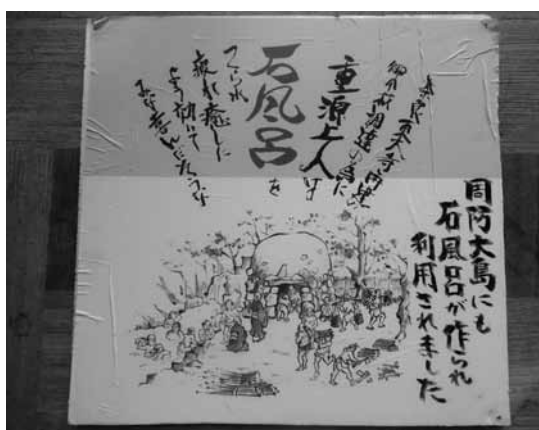 奈良東大寺再建
御用材調達の為に
重源上人は
石風呂を
つくられ
疲れ癒した
よう効いて
周防大島にも
石風呂が作られ
利用されました